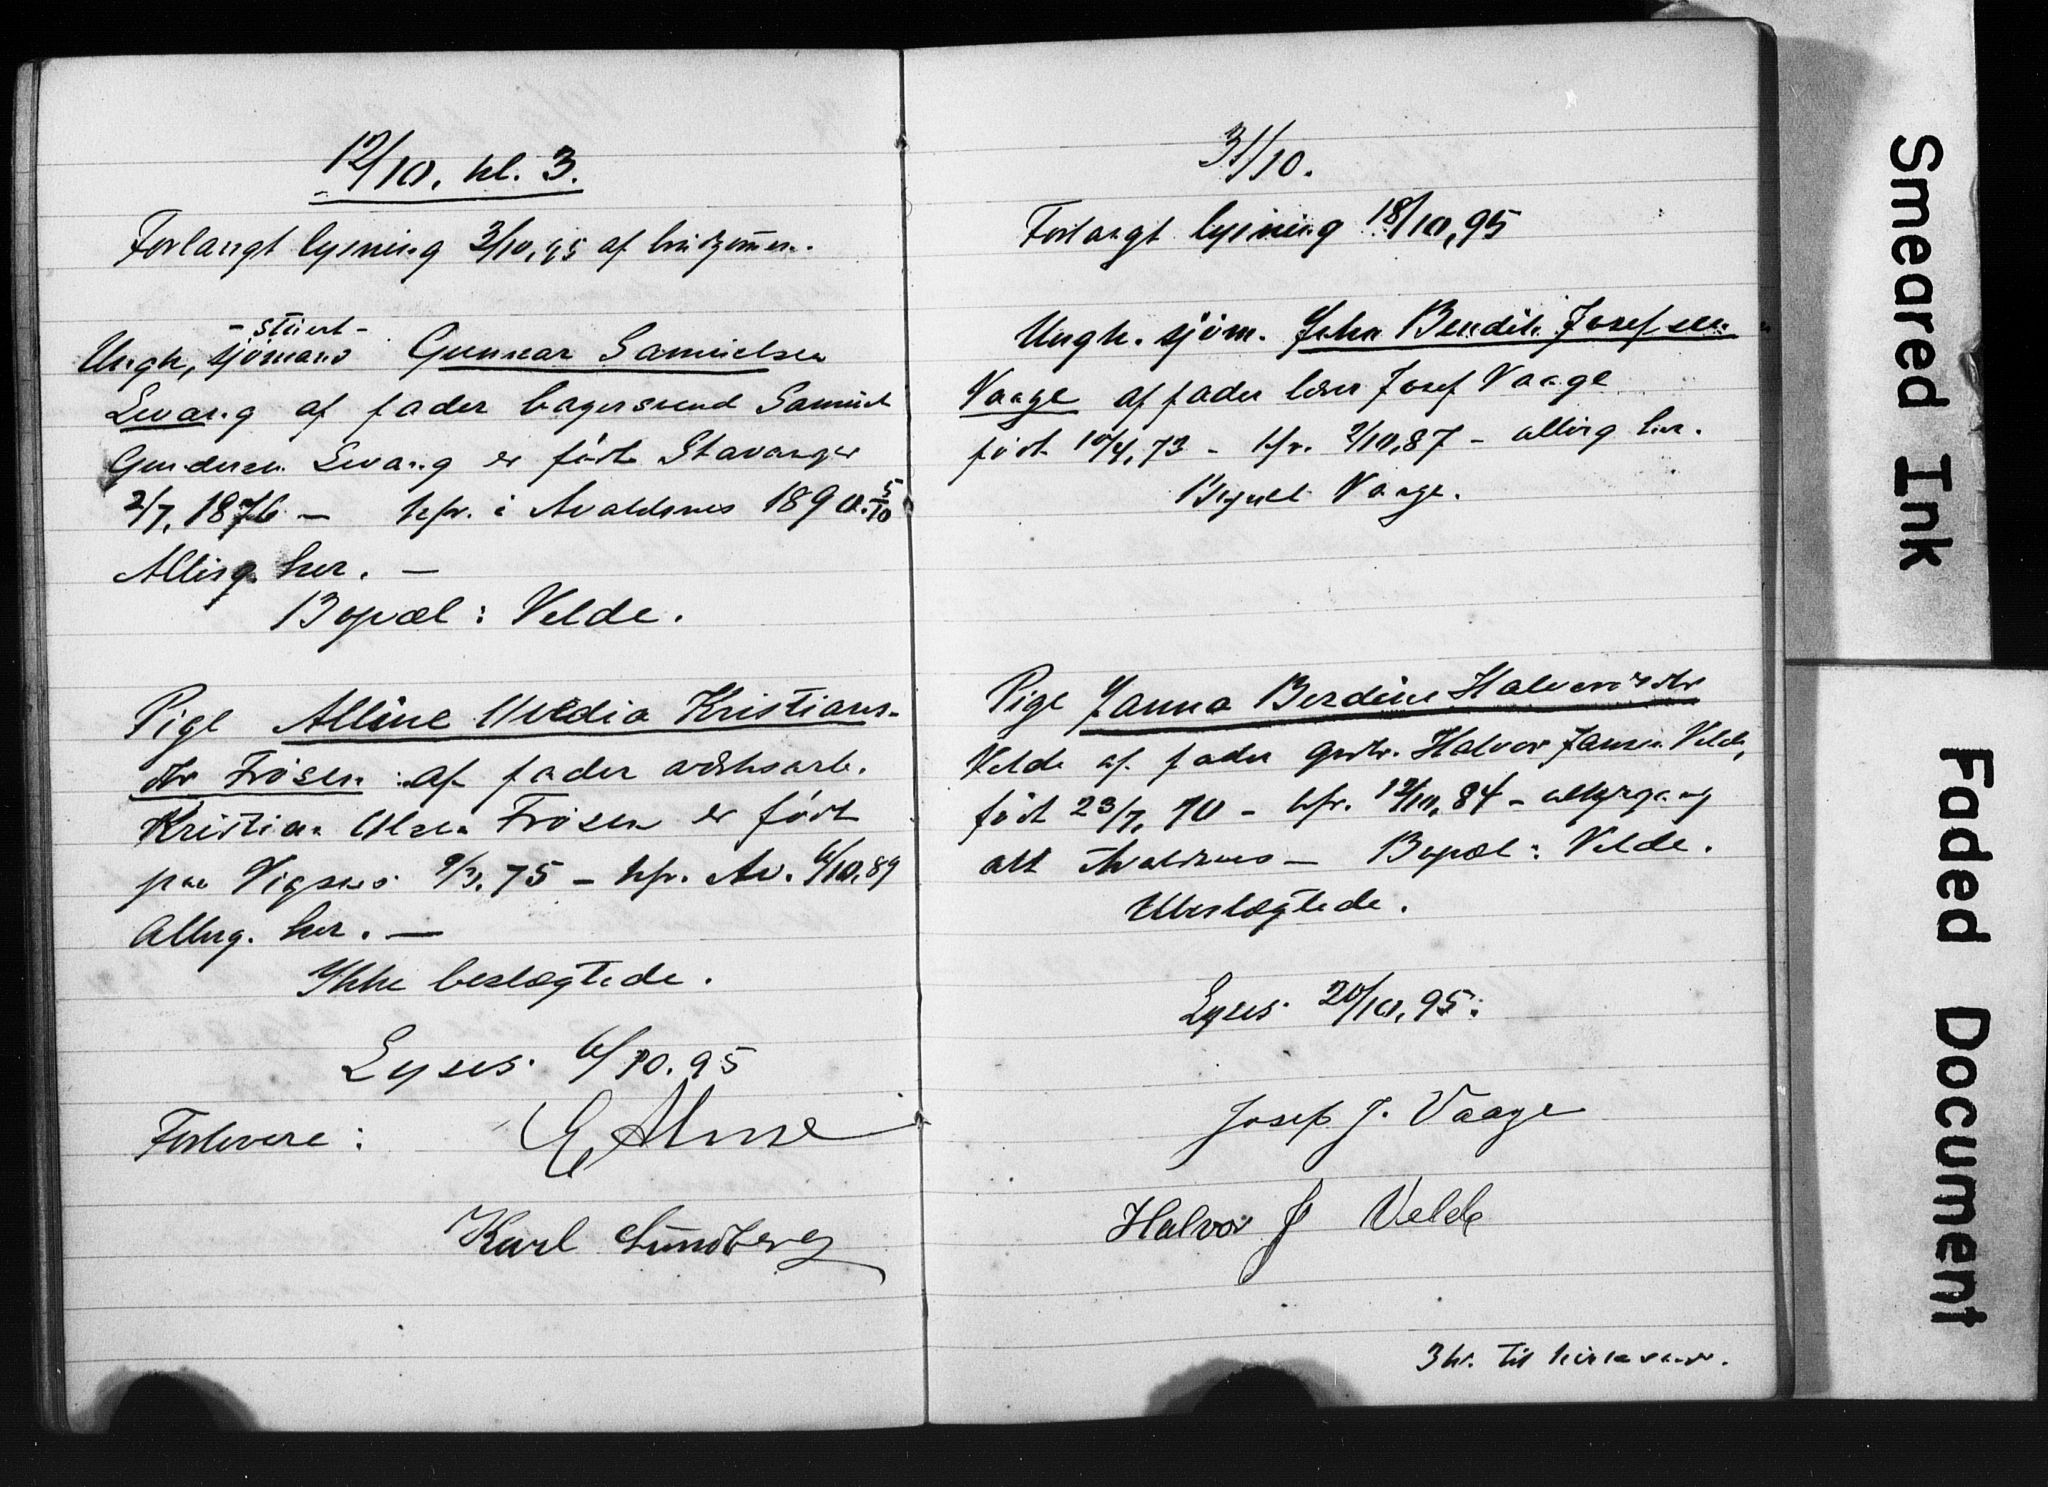 12/10, kl. 3.
Forlangt lysning 3/10, 95 af brudgommen.
- stuert -
Ungk, sjömand Gunnar Samuelsen
Svang af fader bagersvend Samuel
Gudersen Svang er født Stavanger
2/7, 1876 - kfr. i Avaldsnes 1890. 5/10
Allirg. her. -
Bopæl: Velde.
Pige Alline Uvedia Kristians-
dtr Frösen af fader arb.
Kristian Olsen Frösen er født
paa Vigsnes 9/3, 75 - kfr. Av. 6/10, 89
Allerg. her. -
Ikke beslægtede.
Lyses. 6/10. 95
Forlovere: E Alme
Karl Lundberg
31/10.
Forlangt lysning 18/10, 95
Ungk. sjöm. John Bendik Josefsen
Vaage af fader lærer Josef Vaage
født 10/4, 73 - kfr. 2/10, 87 - allirg her.
Bopæl Vaage.
Pige Janna Berdine Halvorsdtr
Velde af fader grdbr. Halvor Jansen Velde,
født 23/7, 70 - kfr. 12/10, 84 - altergang
alt Avaldsnes - Bopæl: Velde.
Ubeslægtede.
Lyses. 20/10, 95.
Josef J. Vaage
Halvor J Velde
3 kr. til
Smeared Ink
Faded Document